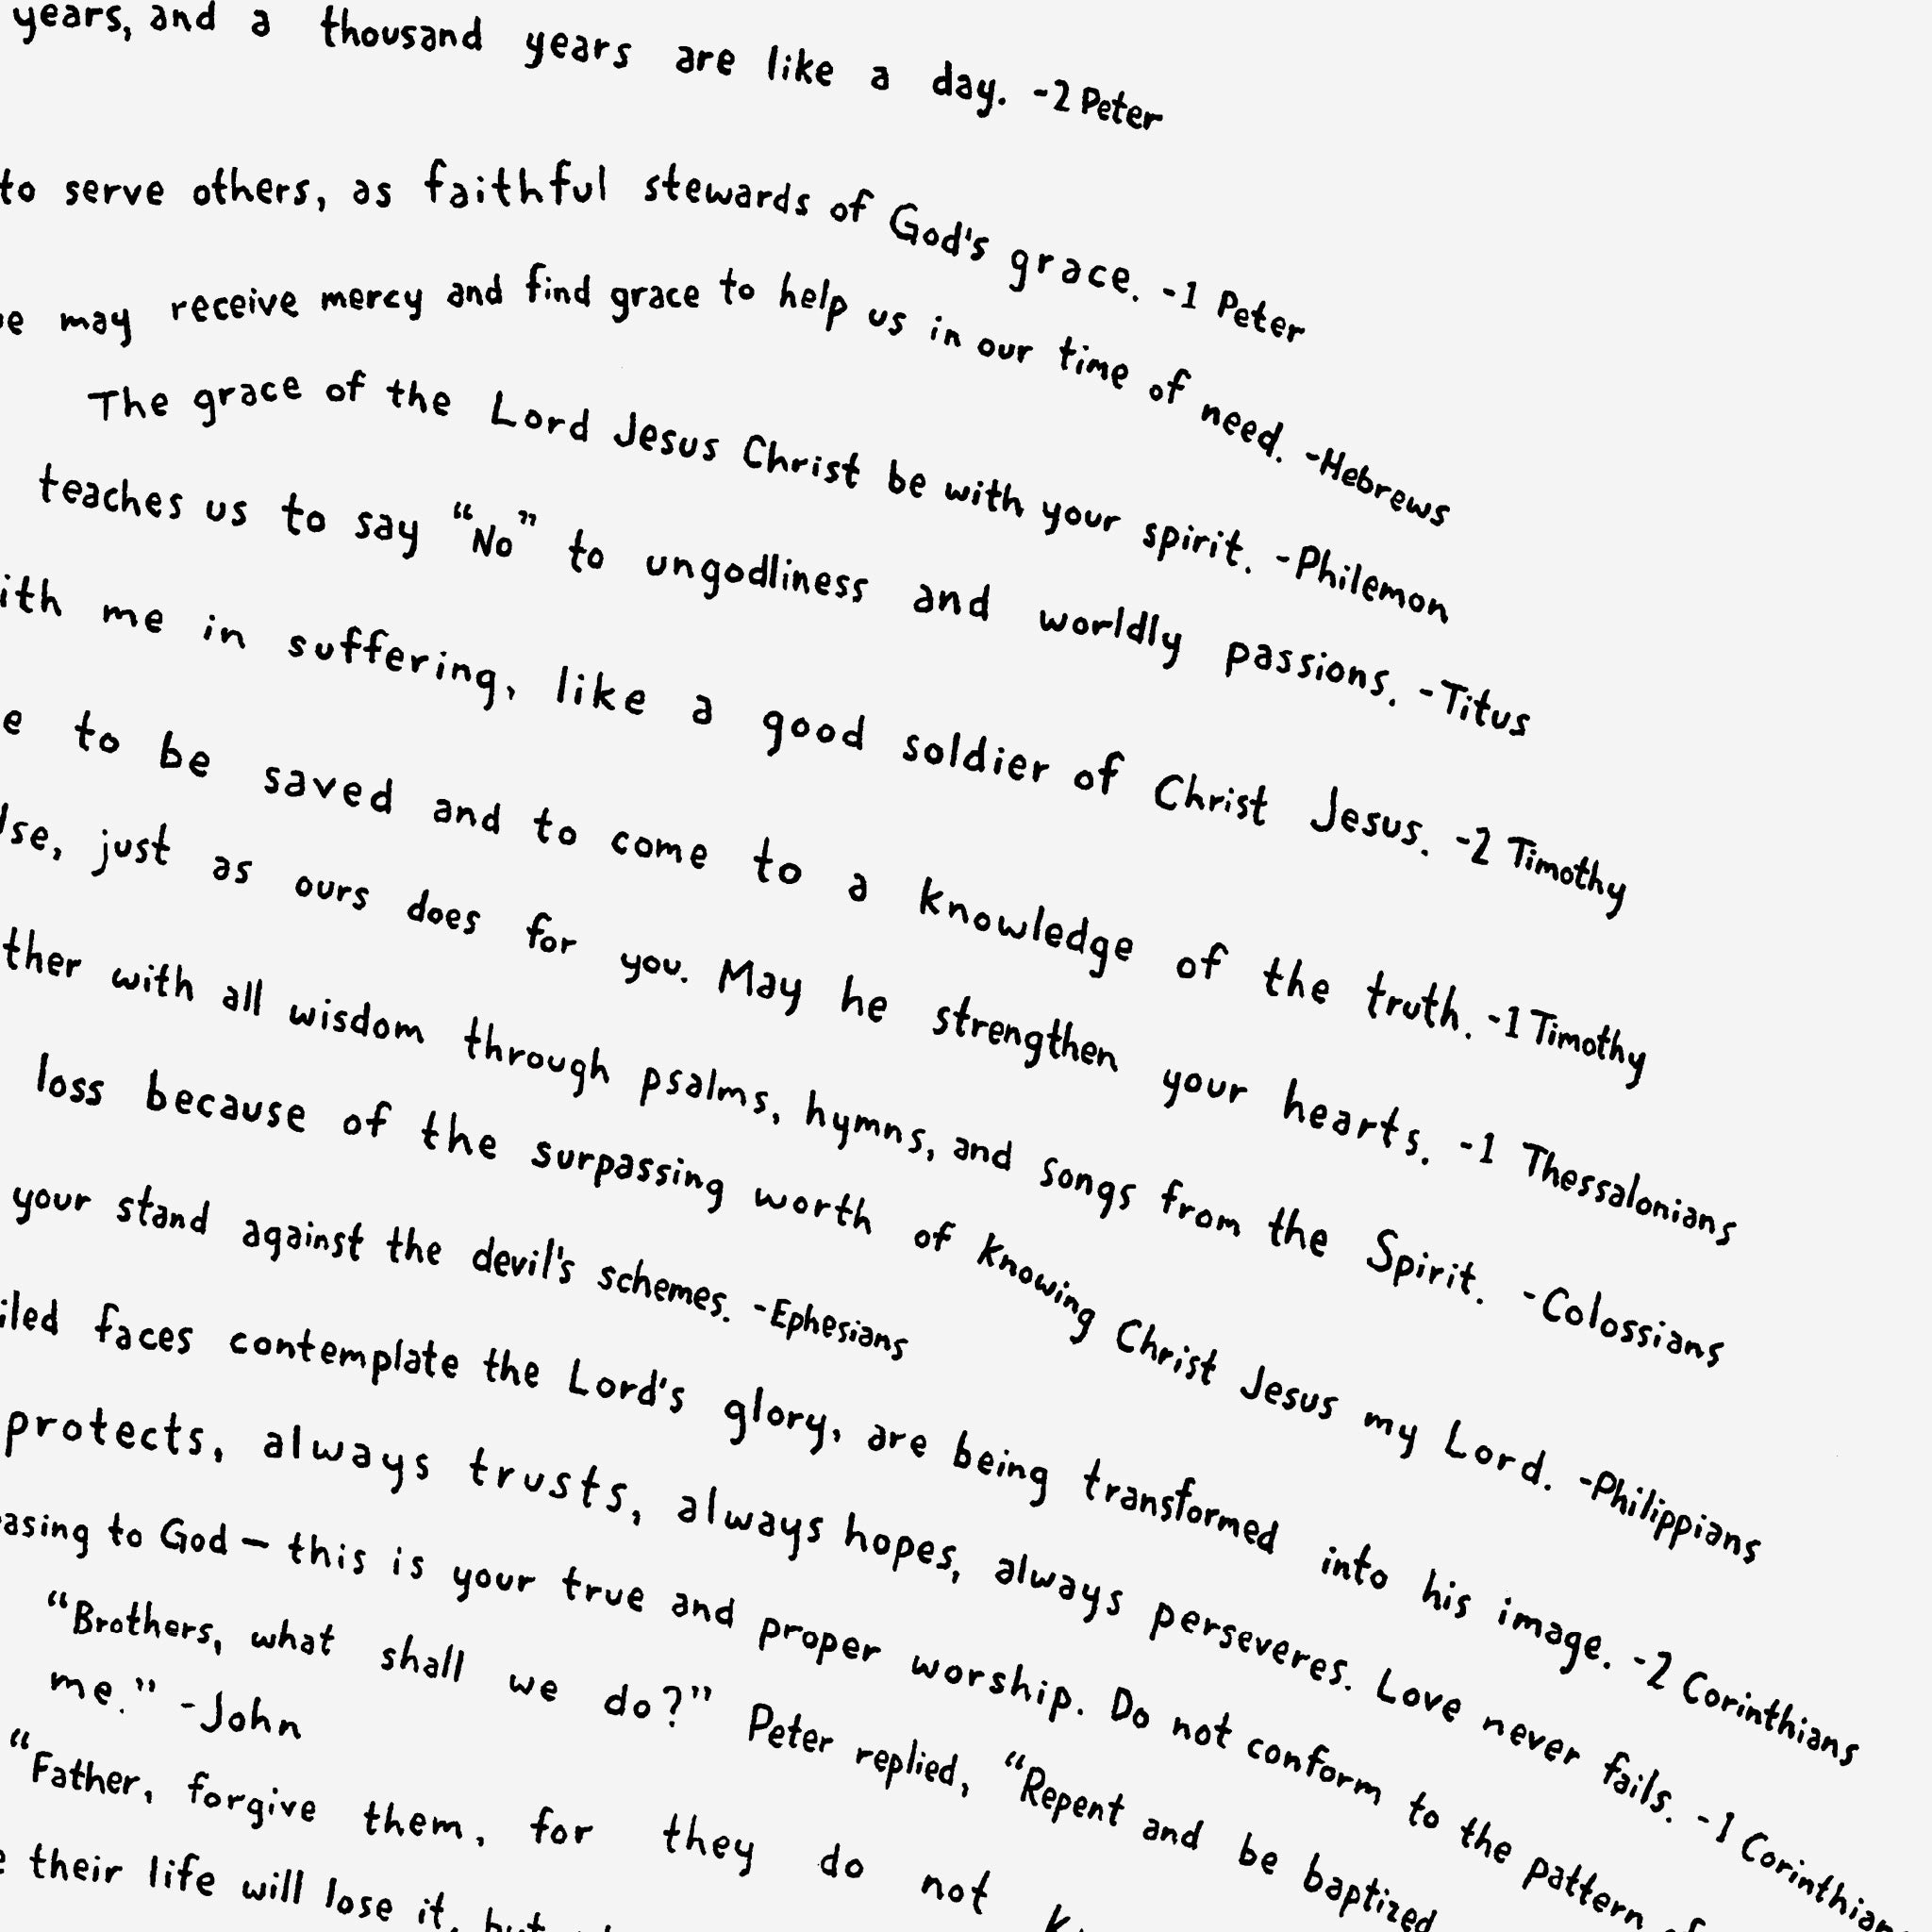 years, and a thousand years are like a day. -2 Peter
to serve others, as faithful stewards of God's grace. -1 Peter
may receive mercy and find grace to help us in our time of need. -Hebrews
The grace of the Lord Jesus Christ be with your spirit. -Philemon
teaches us to say “No” to ungodliness and worldly passions. -Titus
ith me in suffering, like a good soldier of Christ Jesus. -2 Timothy
e to be saved and to come to a knowledge of the truth. -1 Timothy
lse, just as ours does for you. May he strengthen your hearts. -1 Thessalonians
ther with all wisdom through psalms, hymns, and songs from the Spirit. -Colossians
loss because of the surpassing worth of knowing Christ Jesus my Lord. -Philippians
your stand against the devil's schemes. -Ephesians
iled faces contemplate the Lord's glory, are being transformed into his image. -2 Corinthians
protects, always trusts, always hopes, always perseveres. Love never fails. -1 Corinthian
asing to God — this is your true and proper worship. Do not conform to the pattern of
“Brothers, what shall we do?” Peter replied, “Repent and be baptized
me.” -John
“Father, forgive them, for they do not
their life will lose it, but